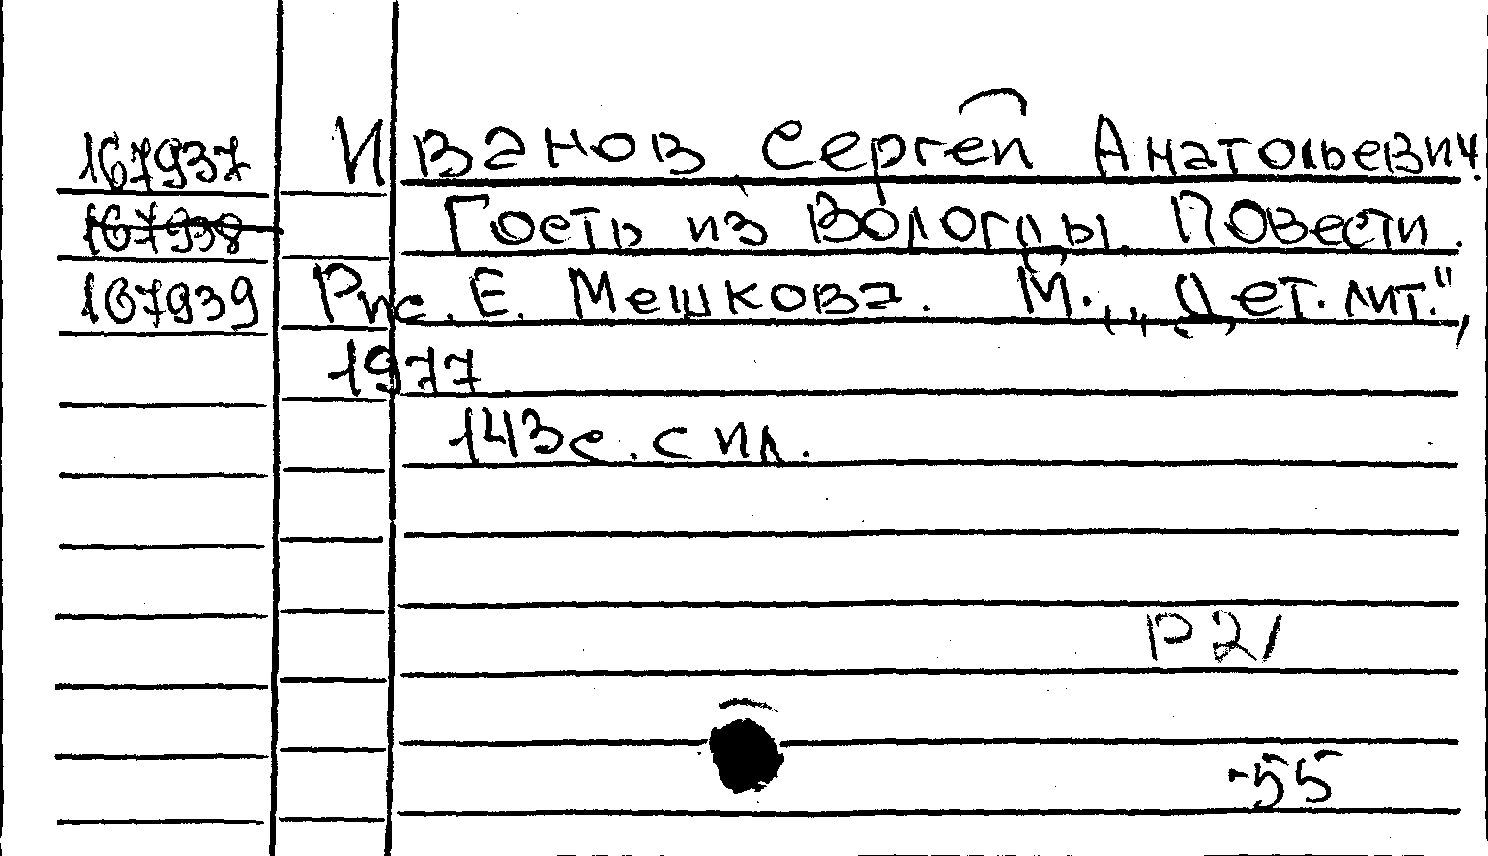 167937 Иванов Сергей Анатольевич.
167938 Гость из Вологды. Повести.
167939 Рис. Е. Мешкова. М., „Дет. лит.",
1977
143 с. с ил.
Р 21
-55